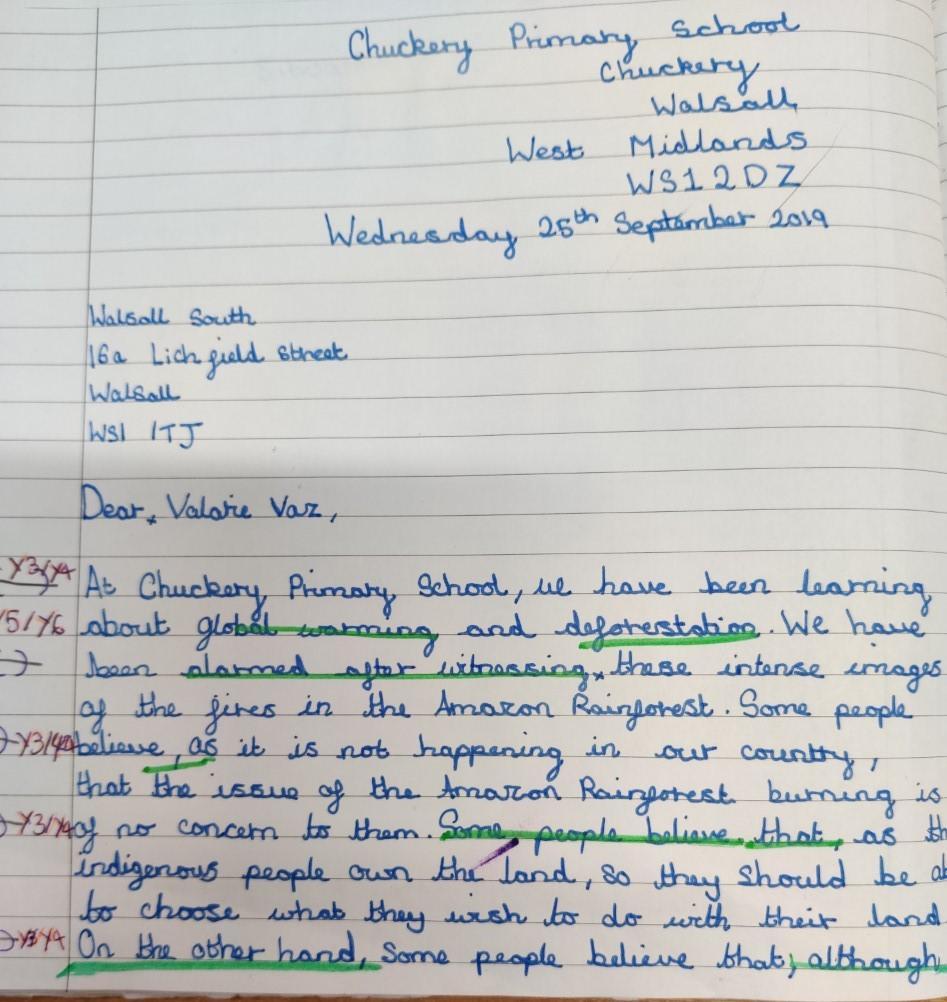 Chuckery Primary School
Chuckery
Walsall
West Midlands
WS1 2DZ
Wednesday 25th September 2019
Walsall South
16a Lichfield Street
Walsall
WS1 1TJ
Dear, Valarie Vaz,
Y3/Y4 At Chuckery Primary School, we have been learning
Y5/Y6 about global warming and deforestation. We have
been alarmed after witnessing, these intense images
of the fires in the Amazon Rainforest. Some people
Y3/Y4 believe, as it is not happening in our country,
that the issue of the Amazon Rainforest burning is
Y3/Y4 of no concern to them. Some people believe that, as th
indigenous people own the land, so they should be ab
to choose what they wish to do with their land
Y3/Y4 On the other hand, Some people believe that, although